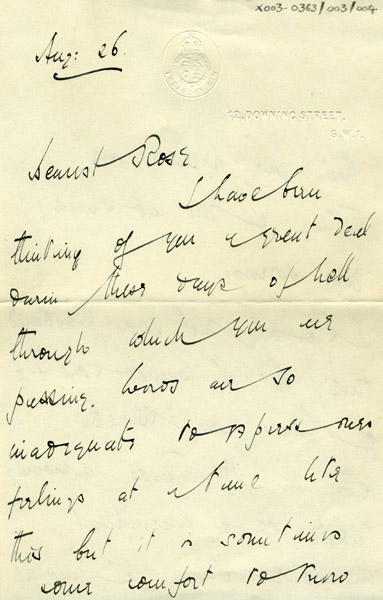 X003-0363/003/004
Aug: 26.
12, DOWNING STREET.
S.W.1.
Dearest Rose
I have been
thinking of you a great deal
durin these days of hell
through which you are
passing. Words are so
inadequate to express ones
feelings at a time like
this but it is sometimes
some comfort to know